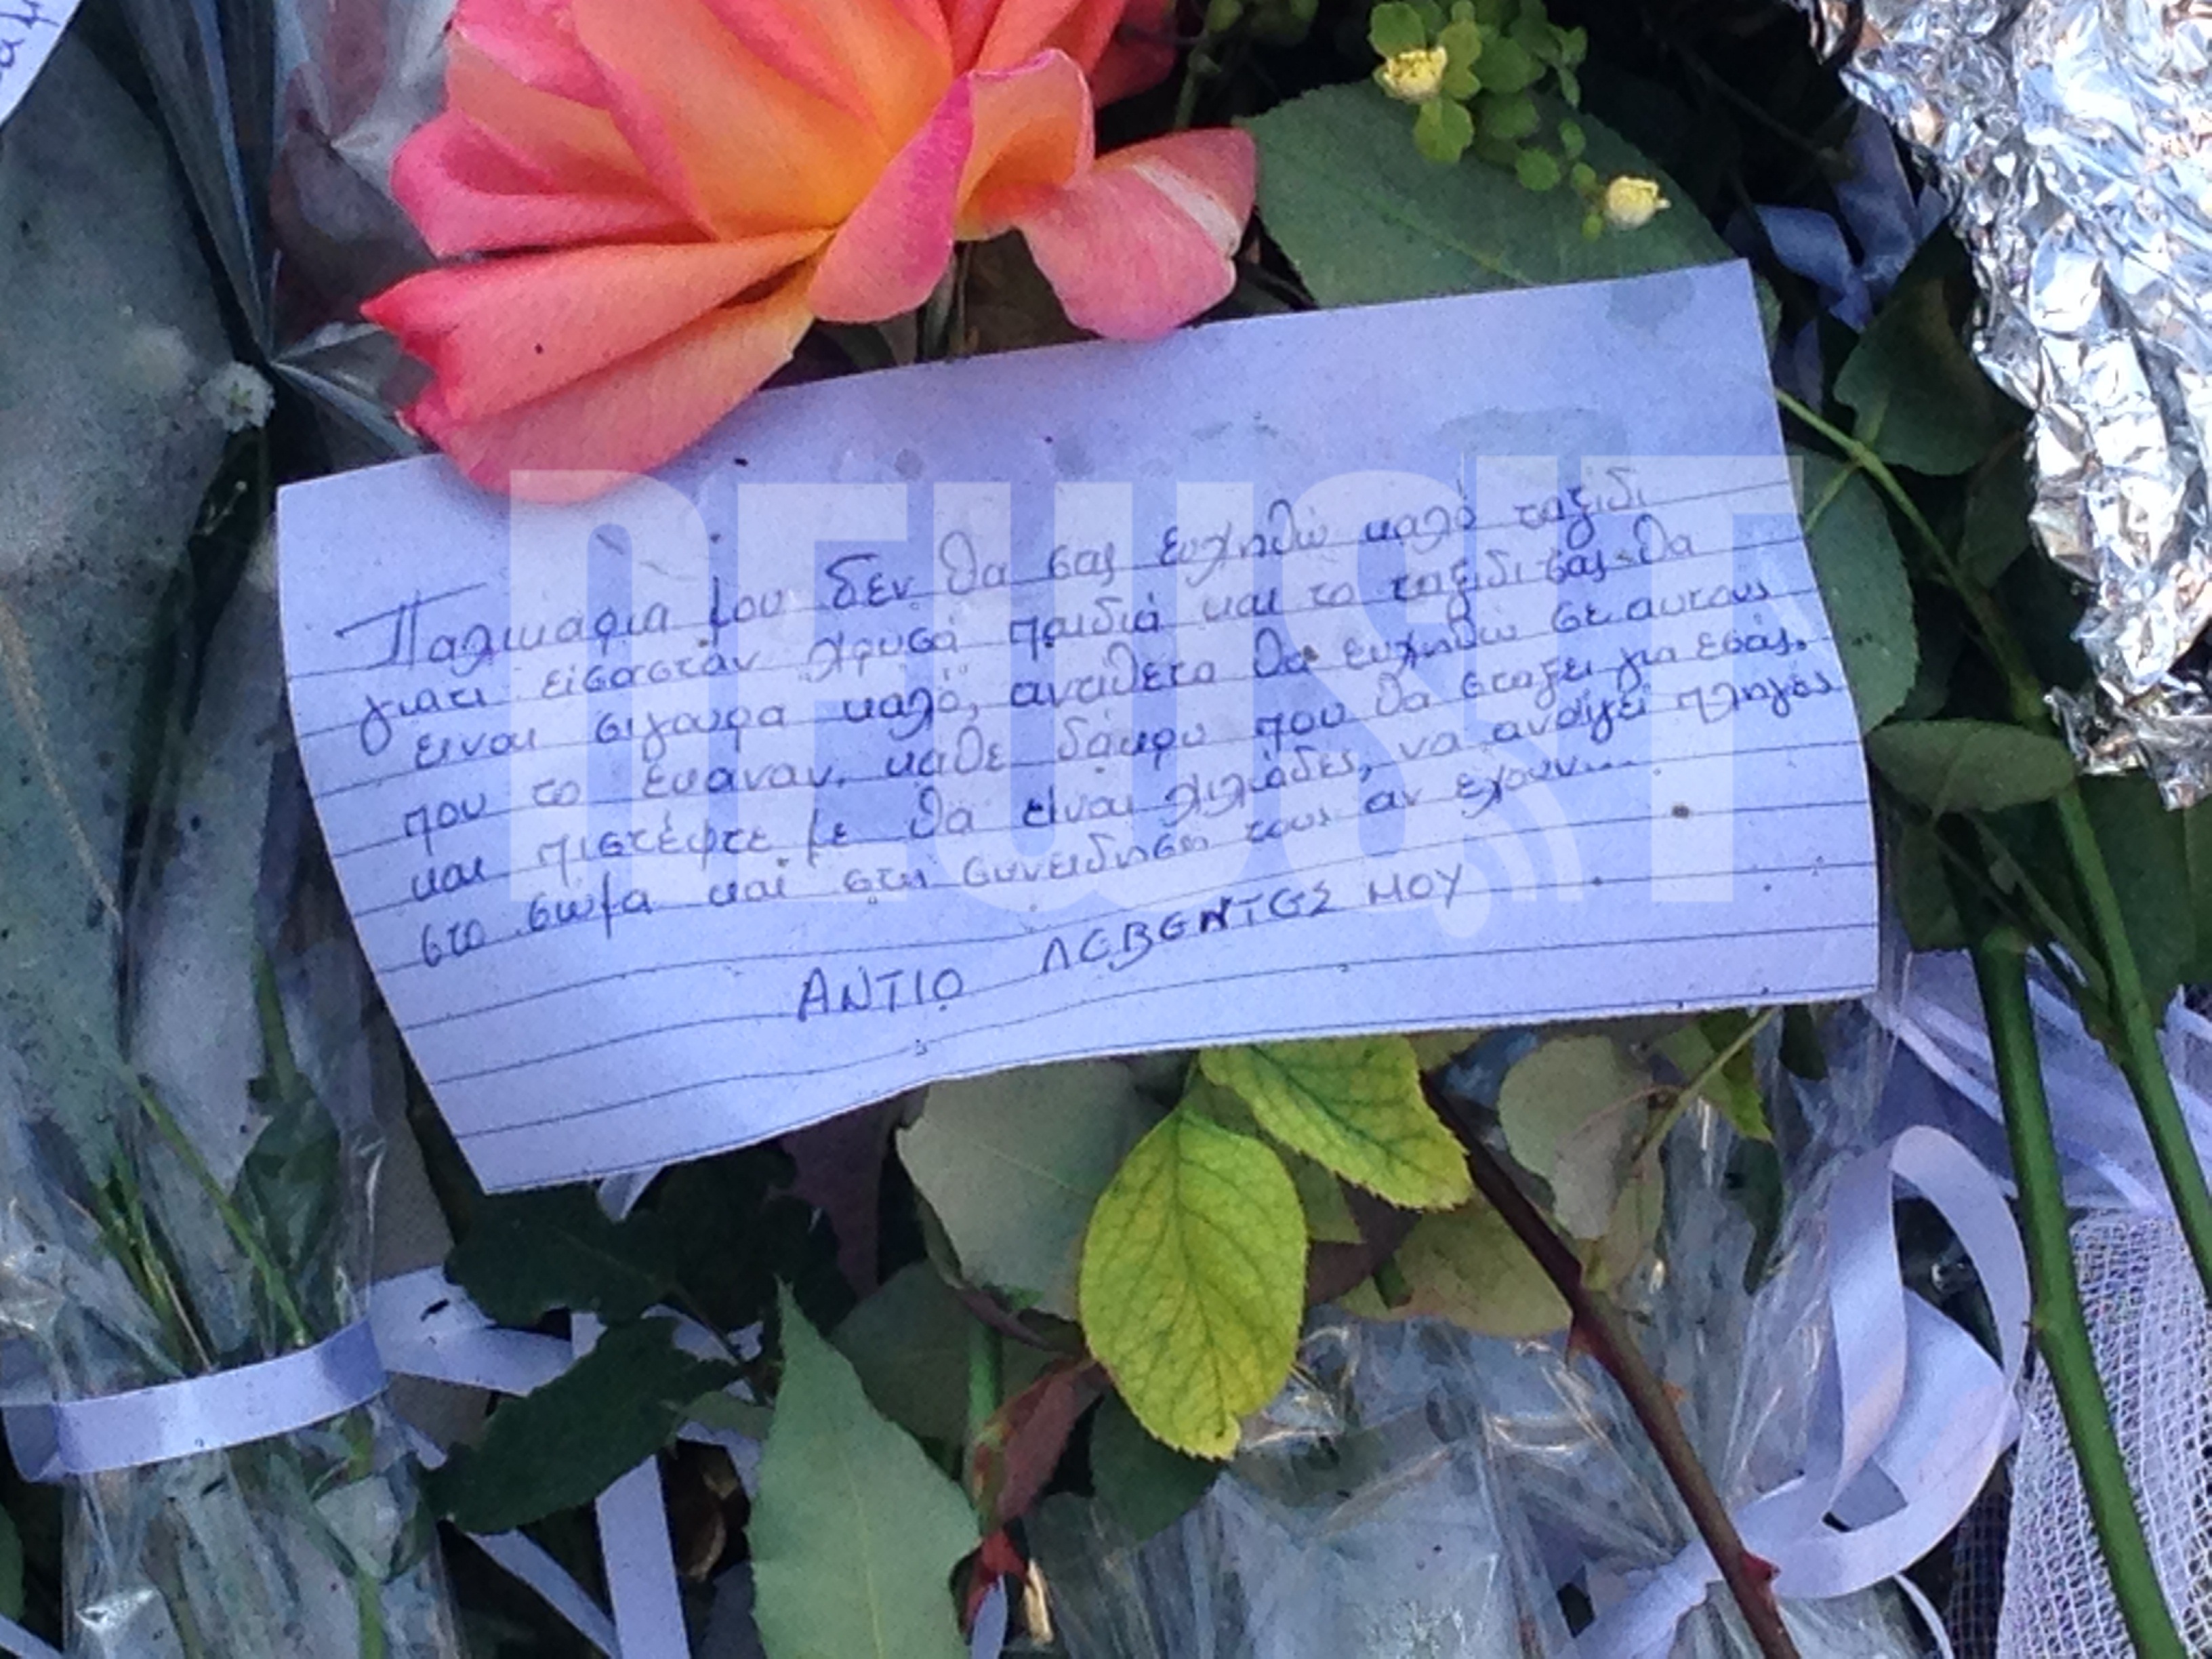 Παλικαρια μου δεν θα σας ευχηθώ καλό ταξιδι
γιατι είσασταν χρυσά παιδιά και το ταξιδι σας θα
ειναι σιγουρα καλό, αντιθετα θα ευχηθώ σε αυτους
που το εκαναν. κάθε δάκρυ που θα σταξει για εσάς.
και πιστέψτε με θα είναι χιλιάδες, να ανοίγει πληγές
στο σώμα και στη συνειδηση τους αν εχουν....
ΑΝΤΙΟ ΛΕΒΕΝΤΕΣ ΜΟΥ
NEWSIT